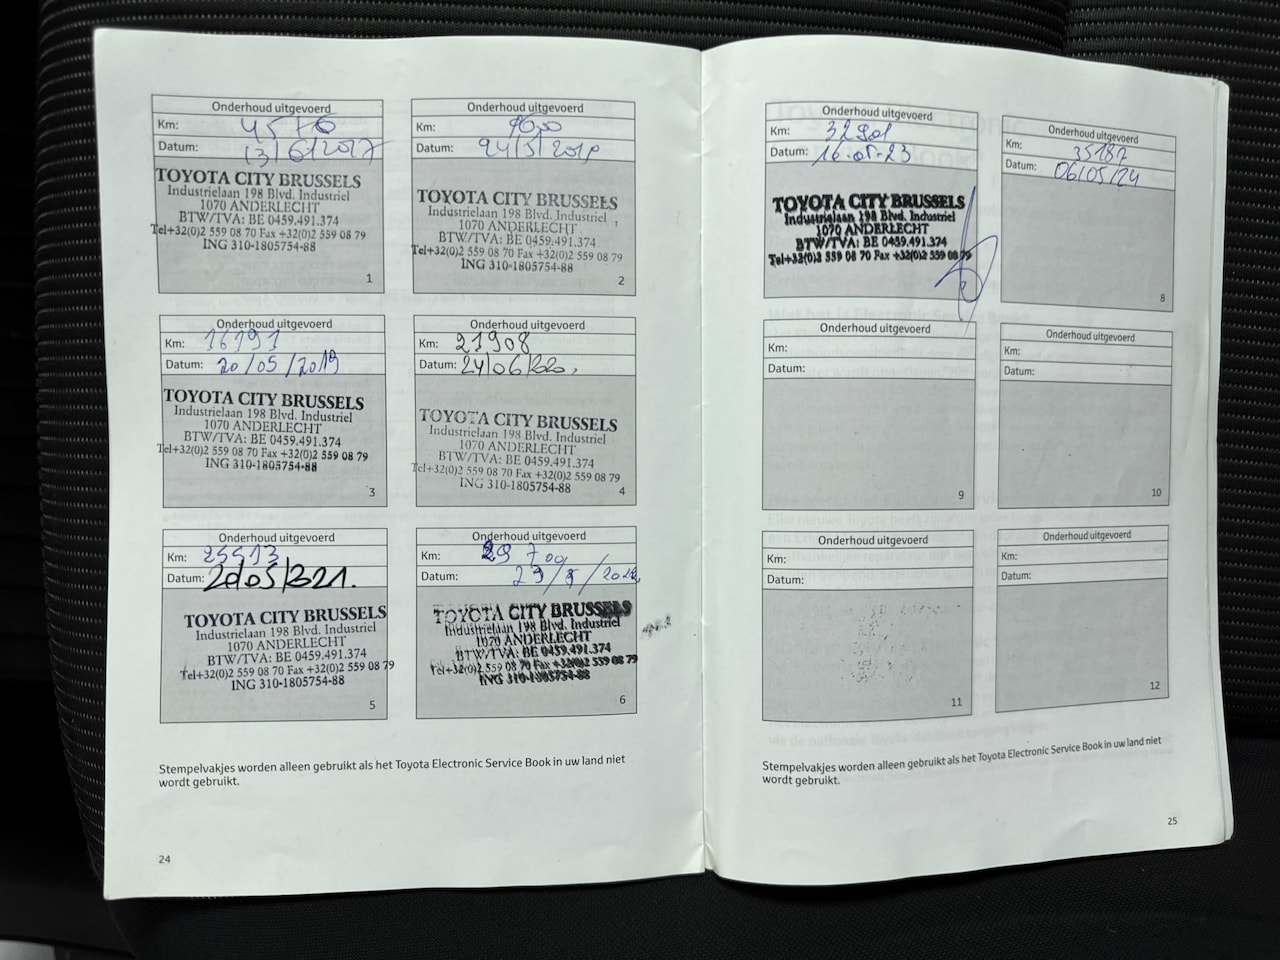 Onderhoud uitgevoerd
Km: 4576
Datum: 13/6/2017
TOYOTA CITY BRUSSELS
Industrielaan 198 Blvd. Industriel
1070 ANDERLECHT
BTW/TVA: BE 0459.491.374
Tel+32(0)2 559 08 70 Fax +32(0)2 559 08 79
ING 310-1805754-88
1
Onderhoud uitgevoerd
Km:
Datum:
TOYOTA CITY BRUSSELS
Industrielaan 198 Blvd. Industriel
1070 ANDERLECHT
BTW/TVA: BE 0459.491.374
Tel+32(0)2 559 08 70 Fax +32(0)2 559 08 79
ING 310-1805754-88
2
Onderhoud uitgevoerd
Km:
Datum: 20/05/2019
TOYOTA CITY BRUSSELS
Industrielaan 198 Blvd. Industriel
1070 ANDERLECHT
BTW/TVA: BE 0459.491.374
Tel+32(0)2 559 08 70 Fax +32(0)2 559 08 79
ING 310-1805754-88
3
Onderhoud uitgevoerd
Km: 21908
Datum:
TOYOTA CITY BRUSSELS
Industrielaan 198 Blvd. Industriel
1070 ANDERLECHT
BTW/TVA: BE 0459.491.374
Tel+32(0)2 559 08 70 Fax +32(0)2 559 08 79
ING 310-1805754-88
4
Onderhoud uitgevoerd
Km: 25513
Datum:
TOYOTA CITY BRUSSELS
Industrielaan 198 Blvd. Industriel
1070 ANDERLECHT
BTW/TVA: BE 0459.491.374
Tel+32(0)2 559 08 70 Fax +32(0)2 559 08 79
ING 310-1805754-88
5
Onderhoud uitgevoerd
Km: 29 700
Datum:
TOYOTA CITY BRUSSELS
Industrielaan 198 Blvd. Industriel
1070 ANDERLECHT
BTW/TVA: BE 0459.491.374
Tel+32(0)2 559 08 70 Fax +32(0)2 559 08 79
ING 310-1805754-88
6
Stempelvakjes worden alleen gebruikt als het Toyota Electronic Service Book in uw land niet
wordt gebruikt.
24
Onderhoud uitgevoerd
Km: 32901
Datum: 16-05-23
TOYOTA CITY BRUSSELS
Industrielaan 198 Blvd. Industriel
1070 ANDERLECHT
BTW/TVA: BE 0459.491.374
Tel+32(0)2 559 08 70 Fax +32(0)2 559 08 79
Onderhoud uitgevoerd
Km: 35187
Datum: 06/05/24
8
Onderhoud uitgevoerd
Km:
Datum:
9
Onderhoud uitgevoerd
Km:
Datum:
10
Onderhoud uitgevoerd
Km:
Datum:
11
Onderhoud uitgevoerd
Km:
Datum:
12
Stempelvakjes worden alleen gebruikt als het Toyota Electronic Service Book in uw land niet
wordt gebruikt.
25